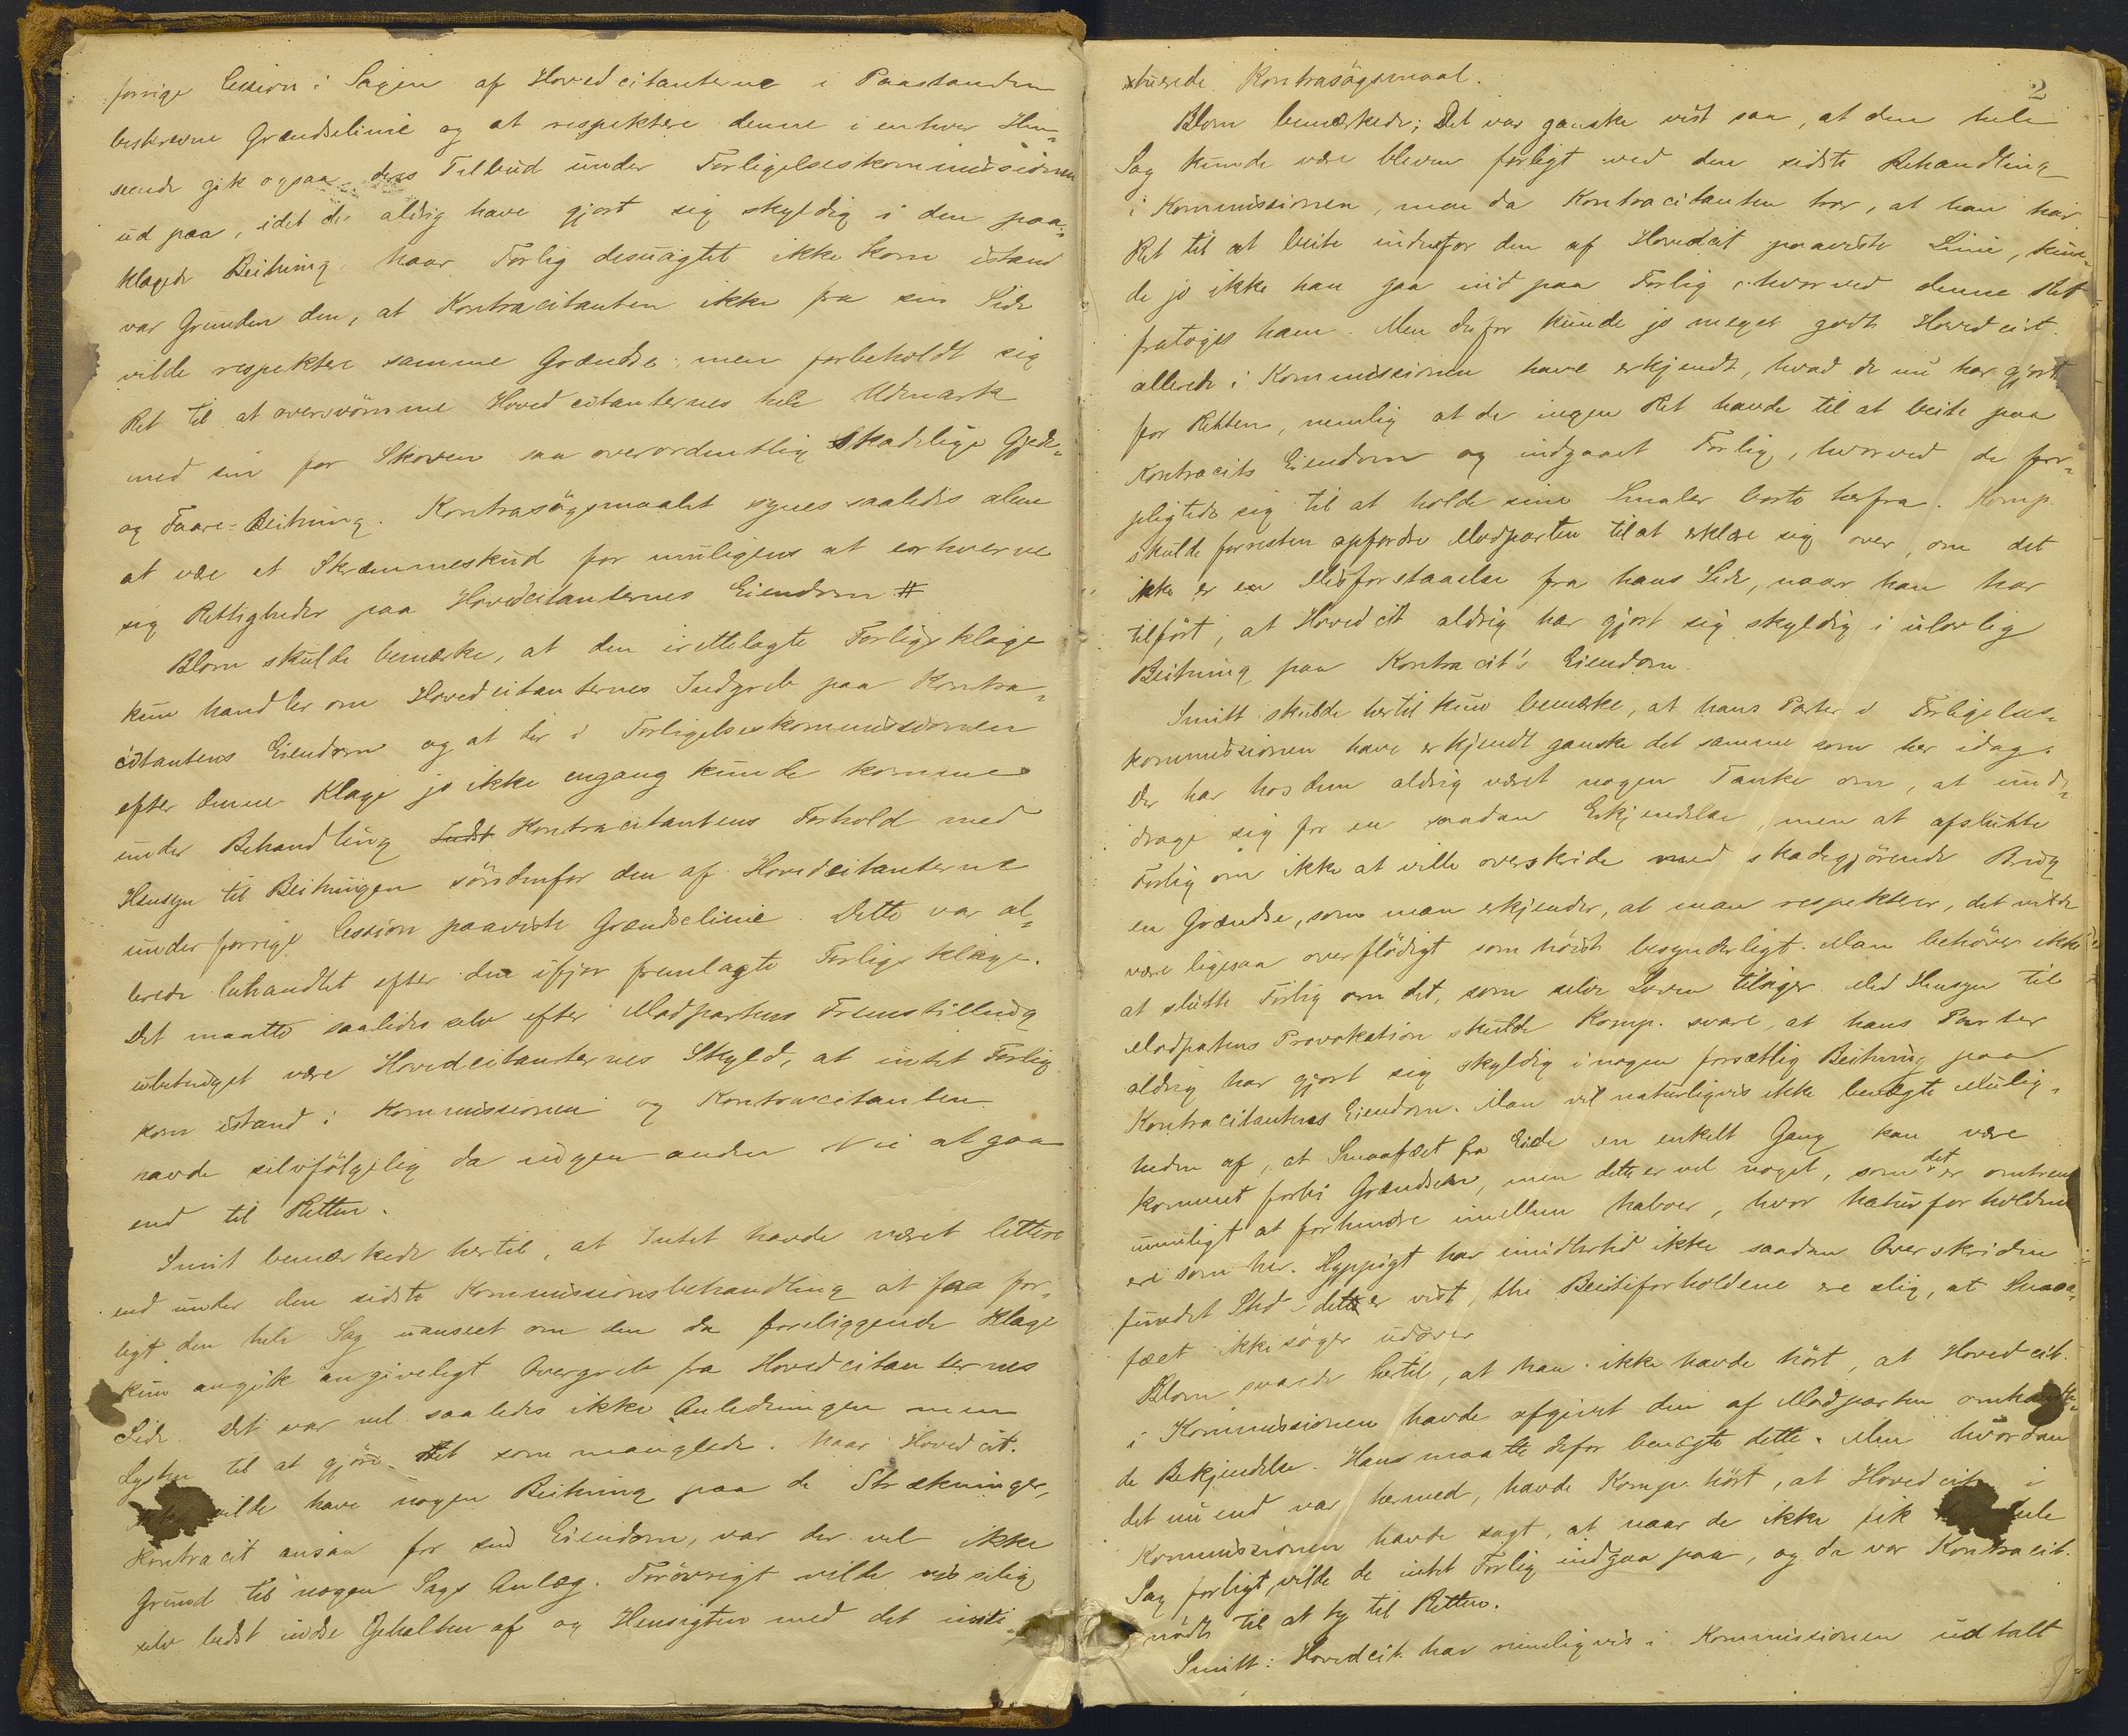 forrige Session i Sagen af Hovedcitanterne i Paastanden
beskrevne Grændselinie og at respektere denne i enhver Hen-
seende gik ogsaa deres Tilbud under Forligelseskommissionen
ud paa, idet de aldrig have gjort sig skyldig i den paa-
klagede Beitning. Naar Forlig desuagtet ikke kom istand
var Grunden den, at Kontracitanten ikke fra sin Side
vilde respektere samme Grændse men forbeholdt sig
Ret til at oversvömme Hovedcitanternes hele Udmark
med sin for Skoven saa overordentlig skadelige Gjede-
og Faare-Beitning. Kontrasögsmaalet synes saaledes alene
at være et Skræmmeskud for muligens at erhverve
sig Rettigheder paa Hovedcitanternes Eiendom #
Blom skulde bemærke, at den irettelagte Forligsklage
kun handler om Hovedcitanternes Indgreb paa Kontra-
citantens Eiendom og at der i Forligelseskommissionen
efter denne Klage jo ikke engang kunde komme
under Behandling Kontracitantens Forhold med
Hensyn til Beitningen söndenfor den af Hovedcitanterne
under forrige Session paaviste Grændselinie. Dette var al-
lerede behandlet efter den ifjor fremlagte Forligsklage.
Det maatte saaledes selv efter Modpartens Fremstilling
ubetinget være Hovedcitanternes Skyld, at intet Forlig
kom istand i Kommissionen og Kontracitanten
havde selvfölgelig da ingen anden Vei at gaa
end til Retten.
Smit bemærkede hertil, at Intet havde været lettere
end under den sidste Kommissionsbehandling at faa for-
ligt den hele Sag uanseet om den da foreliggende Klage
kun angik angiveligt Overgreb fra Hovedcitanternes
Side. Det var vel saaledes ikke Anledningen men
Lysten til at gjöre det som manglede. Naar Hovedcit.
vilde have nogen Beitning paa de Strækninger,
Kontracit ansaa for sin Eiendom, var der vel ikke
Grund til nogen Sags Anlæg. Forövrigt vilde
selv bedst indse Gehalten af og Hensigten med det insti-
tuerede Kontrasögsmaal.
2
Blom bemærkede; Det var ganske vist saa, at den hele
Sag kunde være bleven forligt ved den sidste Behandling
i Kommissionen, men da Kontracitanten tror, at han har
Ret til at beite indenfor den af Hovedcit paaviste Linie, kun-
de jo ikke han gaa ind paa Forlig, hvorved denne Ret
fratoges ham. Men derfor kunde jo meget godt Hovedcit.
allerede i Kommissionen have erkjendt, hvad de nu har gjort
for Retten, nemlig at de ingen Ret havde til at beite paa
Kontracits Eiendom og indgaaet Forlig, hvorved de for-
pligtede sig til at holde sine Smaler borte herfra. Komp.
skulde forresten opfordre Modparten til at erklære sig over, om det
ikke er en Misforstaaelse fra hans Side, naar han har
tilfört, at Hovedcit aldrig har gjort sig skyldig i ulovlig
Beitning paa Kontracit's Eiendom.
Smitt skulde hertil kun bemærke, at hans Parter i Forligelses-
kommissionen have erkjendt ganske det samme som her idag.
Der har hos dem aldrig været nogen Tanke om, at und-
drage sig for en saadan Erkjendelse, men at afslutte
Forlig om ikke at ville overskride med skadegjörende Brug
en Grændse, som man erkjender, at man respekterer, det vilde
være ligesaa overflödigt som höist besynderligt. Man behöver ikke
at slutte Forlig om det, som selve Loven tilsiger. Med Hensyn til
Modpatens Provokation skulde Komp. svare, at hans Parter
aldrig har gjort sig skyldig i nogen forsætlig Beitning paa
Kontracitantens Eiendom. Man vil naturligvis ikke benægte Mulig-
heden af, at Smaafæet fra Eide en enkelt Gang kan være
kommet forbi Grændsen, men dette er vel noget, som det er omtrent
umuligt at forhindre imellem Naboer, hvor Naturforholdene
ere som her. Hyppigt har imidlertid ikke saadan Overskriden
fundet Sted dette er vist, thi Beiteforholdene ere slig, at Smaa-
fæet ikke söger udover
Blom svarede hertil, at han ikke havde hört, at Hovedcit.
i Kommissionen havde afgivet den af Modparten omhandle-
de Bekjendelse. Han maatte derfor benægte dette. Men hvordan
det nu end var hermed, havde Komp. hört, at Hovedcit i
Kommissionen havde sagt, at naar de ikke fik hele
Sag forligt, vilde de intet Forlig indgaa paa, og da var Kontracit.
nödt til at ty til Retten.
Smitt: Hovedcit. har rimeligvis i Kommissionen udtalt